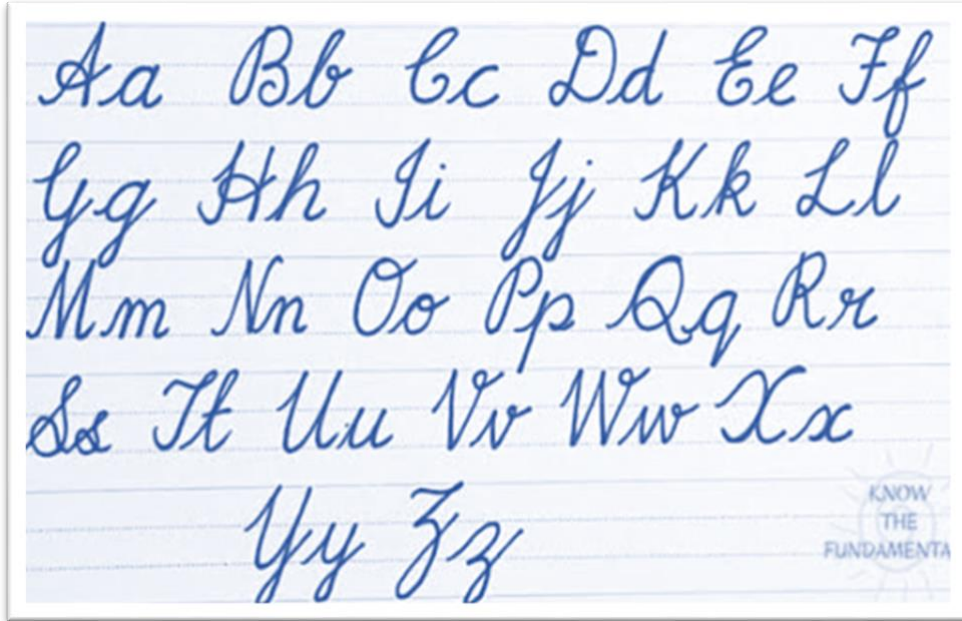 Aa Bb Cc Dd Ee Ff
Gg Hh Ii Jj Kk Ll
Mm Nn Oo Pp Qq Rr
Ss Tt Uu Vv Ww Xx
Yy Zz
KNOW
THE
FUNDAMENTA